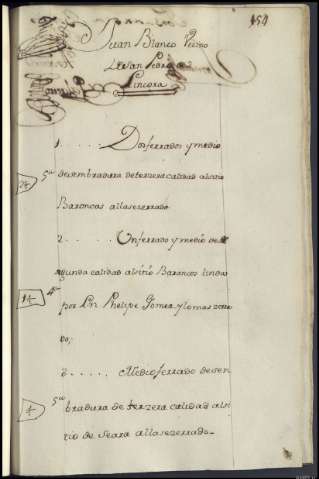 454
Juan Blanco Vecino
de San Pedro de
Lincora
1..... Dos ferrados y medio
24 5ª desembradura deterzera calidad alsitio
Barancos allaserrado
2..... Un ferrado y medio de se
gunda calidad alsitio Barancos linda
14 4ª por Dn Phelipe Gomez y lomas zerra
do,
3..... Medio ferrado desem
4 5ª bradura de terzera calidad alsi
tio de Seara allaserrado